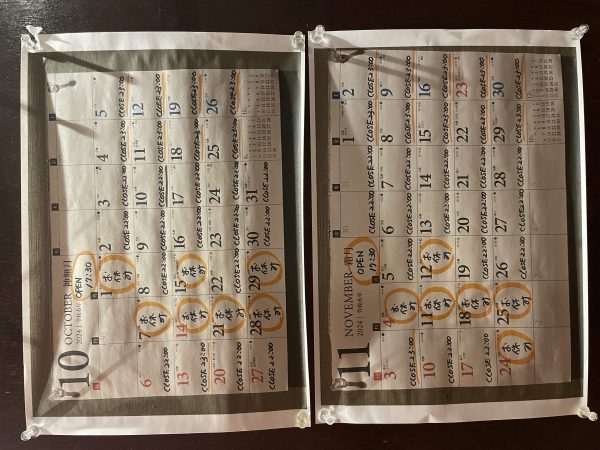 10
OCTOBER 神無月
2024 | 令和6年
OPEN
17:30
1 お休み
2 CLOSE 22:00
3 CLOSE 22:00
4 CLOSE 23:00
5 CLOSE 23:00
6 CLOSE 22:00
7 お休み
8 CLOSE 22:00
9 CLOSE 22:00
10 CLOSE 22:00
11 CLOSE 23:00
12 CLOSE 23:00
13 CLOSE 23:00
14 お休み
15 お休み
16 CLOSE 22:00
17 CLOSE 22:00
18 CLOSE 23:00
19 CLOSE 23:00
20 CLOSE 22:00
21 お休み
22 CLOSE 22:00
23 CLOSE 22:00
24 CLOSE 22:00
25 CLOSE 23:00
26 CLOSE 23:00
27 CLOSE 22:00
28 お休み
29 お休み
30 CLOSE 22:00
31 CLOSE 22:00
11
NOVEMBER 霜月
2024 | 令和6年
OPEN
17:30
30
31
1 CLOSE 23:00
2 CLOSE 23:00
3 CLOSE 23:00
4 お休み
5 CLOSE 22:00
6 CLOSE 22:00
7 CLOSE 22:00
8 CLOSE 23:00
9 CLOSE 23:00
10 CLOSE 22:00
11 お休み
12 お休み
13 CLOSE 22:00
14 CLOSE 22:00
15 CLOSE 23:00
16 CLOSE 23:00
17 CLOSE 22:00
18 お休み
19 CLOSE 22:00
20 CLOSE 22:00
21 CLOSE 22:00
22 CLOSE 23:00
23 CLOSE 23:00
24 お休み
25 お休み
26 CLOSE 22:00
27 CLOSE 22:00
28 CLOSE 22:00
29 CLOSE 23:00
30 CLOSE 23:00